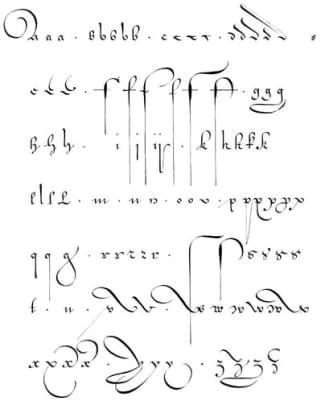 aaaa . bbbbb . cccc . ddddd
eee . ffffff . ggg
hhh . i j ij . k kkkk
llll . m . nn . ooo . pppppp
qqq . rrrrr . ssssss
t . u . vvv . wwwww
xxxx . yyy . zzzz